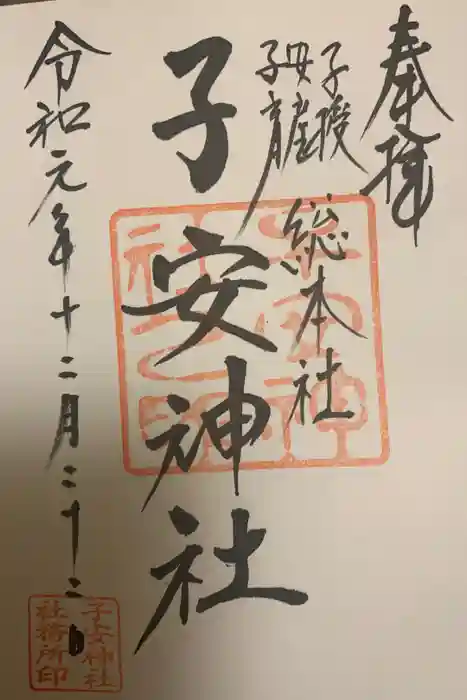 奉拝
子授
母産
子育
総本社
子安神社
令和元年十二月二十二日
子安神社
社務所印